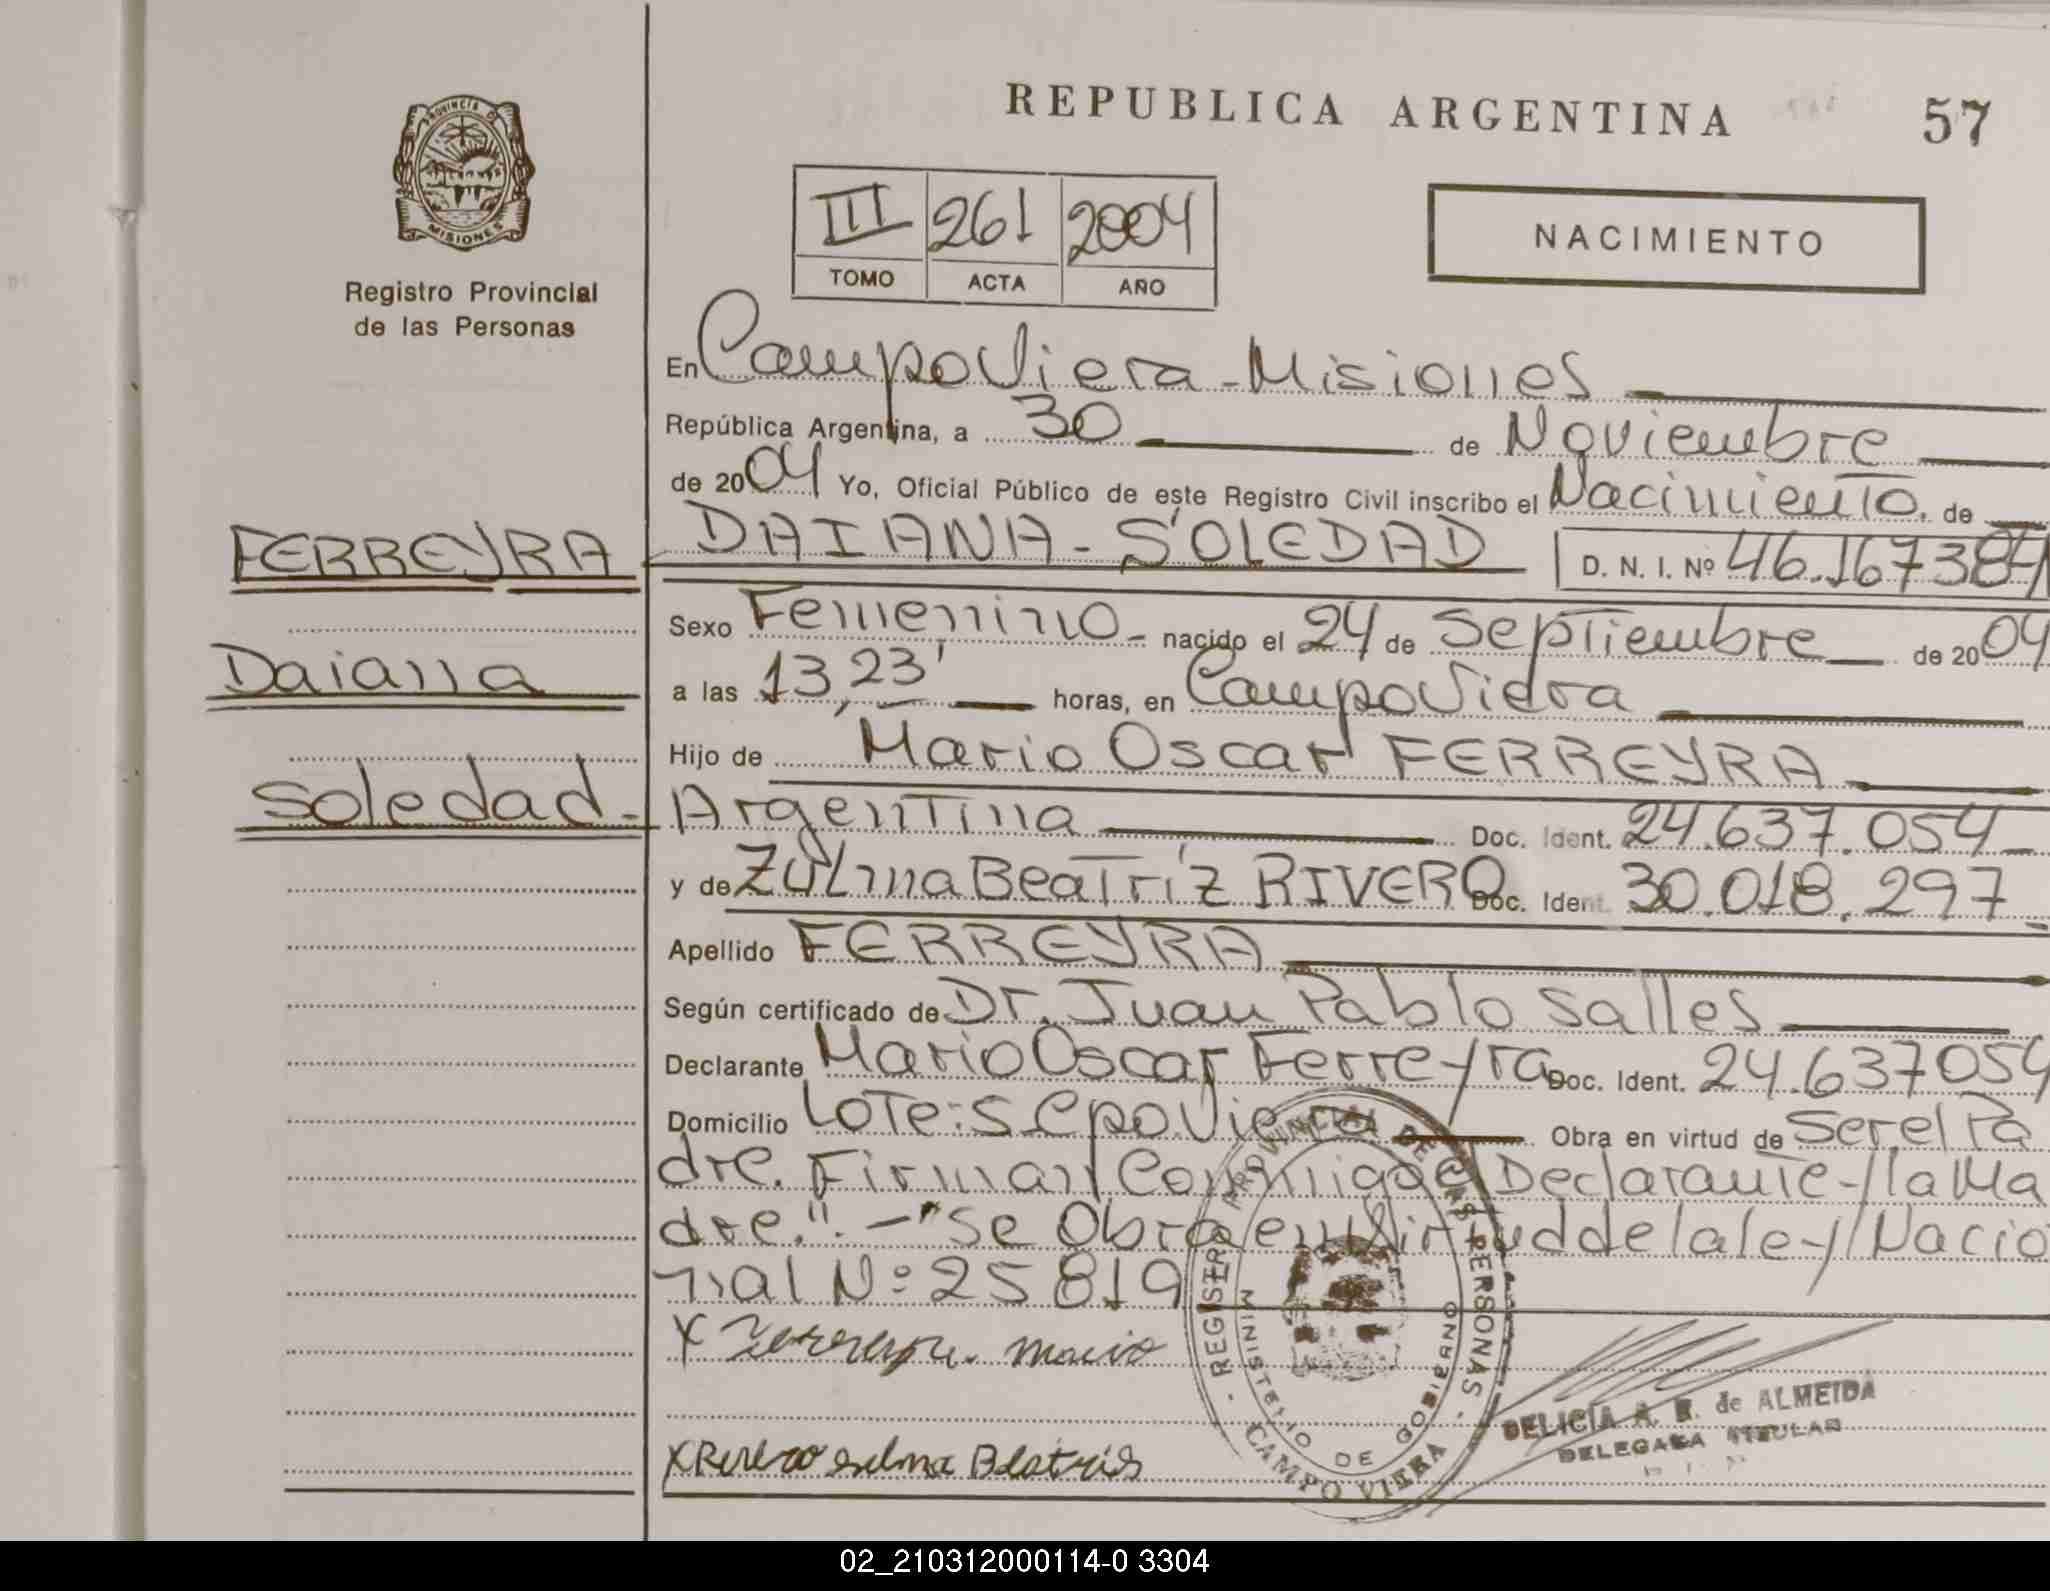 REPUBLICA ARGENTINA 57
PROVINCIA DE
MISIONES
Registro Provincial
de las Personas
III 261 2004
TOMO ACTA AÑO
NACIMIENTO
En Campo Viera - Misiones
República Argentina, a 30 de Noviembre
de 2004 Yo, Oficial Público de este Registro Civil inscribo el Nacimiento. de
FERREYRA DAIANA - SOLEDAD D. N. I. Nº 46.167384
Sexo Femenino - nacido el 24 de Septiembre de 2004
Daiana
a las 13,23' horas, en Campo Viera
Hijo de Mario Oscar FERREYRA
Soledad - Argentina Doc. Ident. 24.637.054
y de ZULma BeaTriz RIVERO Doc. Ident. 30.018.297
Apellido FERREYRA
Según certificado de Dr. Juan Pablo Salles
Declarante Mario Oscar Ferreyra Doc. Ident. 24.637054
Domicilio LOTe: S Cpo Viera Obra en virtud de Ser el Pa
dre. Firman Conmigo el Declarante y la Ma
dre." - "Se Obra en Virtud de la ley Nacio
nal Nº: 25819
X Ferreyra. Mario
REGISTRO PROVINCIAL DE LAS PERSONAS
MINISTERIO DE GOBIERNO
CAMPO VIERA
DELICIA A. de ALMEIDA
DELEGADA TITULAR
X Rivero Selma Beatris
02_210312000114-0 3304